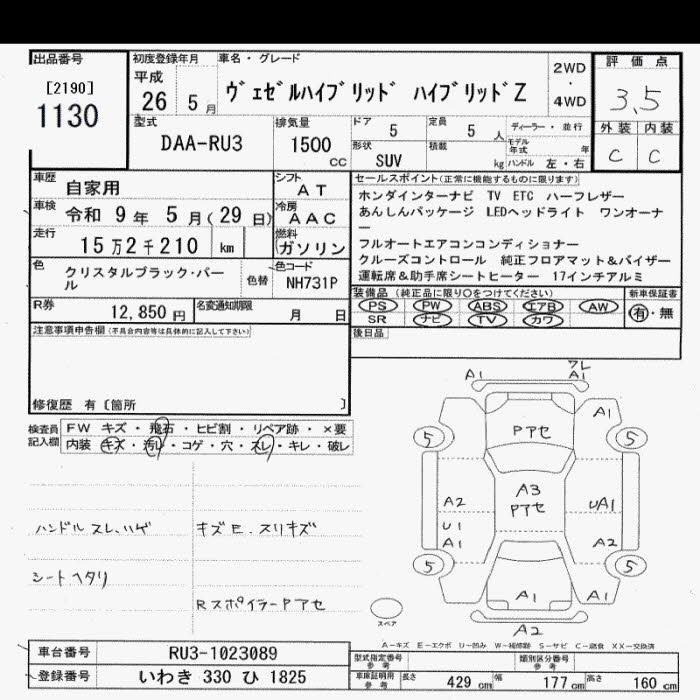 出品番号
[2190]
1130
初度登録年月
平成
26 5 月
車名・グレード
ヴェゼルハイブリッド ハイブリッドZ
2WD
・
4WD
評価点
3,5
外装 内装
C C
型式
DAA-RU3
排気量
1500 CC
ドア 5
定員 5 人
形状 SUV
積載 kg
ディーラー・並行
モデル年式 年
ハンドル 左・右
車歴 自家用
車検 令和 9年 5月(29日)
走行 15万2千210 km
シフト AT
冷房 AAC
燃料 ガソリン
色 クリスタルブラック・パール
色替
色コード NH731P
R券 12,850 円
名変通知期限 月 日
セールスポイント(正常に機能するものに限ります)
ホンダインターナビ TV ETC ハーフレザー
あんしんパッケージ LEDヘッドライト ワンオーナ
ー
フルオートエアコンコンディショナー
クルーズコントロール 純正フロアマット&バイザー
運転席&助手席シートヒーター 17インチアルミ
装備品 (純正品に限り○をつけてください)
PS PW ABS エアB AW
SR ナビ TV カワ
新車保証書
有・無
後日品
注意事項申告欄(不具合内容等は具体的に記入して下さい)
修復歴 有〔箇所 〕
検査員記入欄
FW キズ・飛石・ヒビ割・リペア跡・×要
内装 キズ・汚レ・コゲ・穴・スレ・キレ・破レ
ハンドル スレ、ハゲ
キズE、スリキズ
シートヘタリ
Rスポイラー Pアセ
A1
フレ
A1
A1
5
Pアセ
5
A2
A3
Pアセ
UA1
U1
A1
A2
5
5
A1
A1
A2
スペア
A-キズ E-エクボ U-凹み W-補修跡 S-サビ C-腐食 XX-交換済
車台番号 RU3-1023089
登録番号 いわき 330 ひ 1825
型式指定番号 参考
類別区分番号 参考
車庫証明用 参考
長さ 429 cm
幅 177 cm
高さ 160 cm